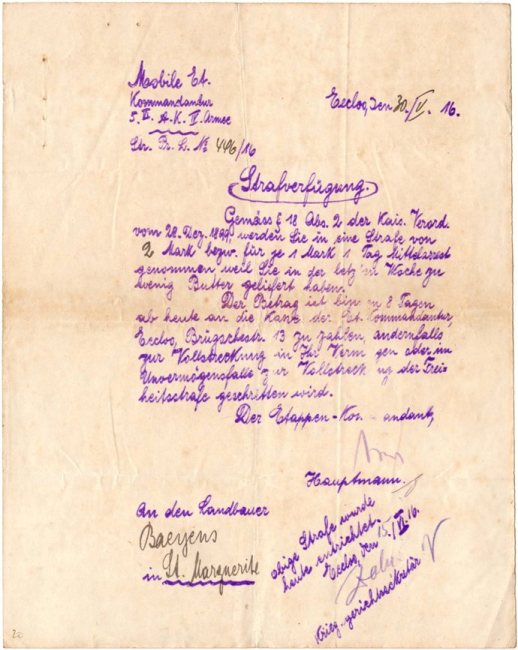 Mobile Et.
Kommandantur
5. II. A.K. IV. Armee
Str. Pr. L. № 496/16
Eecloo, den 30./V. 16.
Strafverfügung.
Gemäss § 18 Abs. 2 der Kais. Verord.
vom 28. Dez. 1899, werden Sie in eine Strafe von
2 Mark bezw. für je 1 Mark 1 Tag Mittelarrest
genommen weil Sie in der letz en Woche zu
wenig Butter geliefert haben.
Der Betrag ist binnen 8 Tagen
ab heute an die Kasse der Et. Kommandantur,
Eecloo, Brügschestr. 13 zu zahlen, andernfalls
zur Vollstreckung in Ihr Verm gen oder im
Unvermögensfalle zur Vollstreck ng der Frei-
heitsstrafe geschritten wird.
Der Etappen-Kom andant,
Hauptmann.
An den Landbauer
Baeyens
in St. Marguerite
obige Strafe wurde
heute entrichtet.
Eecloo, den 15./VI. 16.
Krieg gerichtssekretär
20